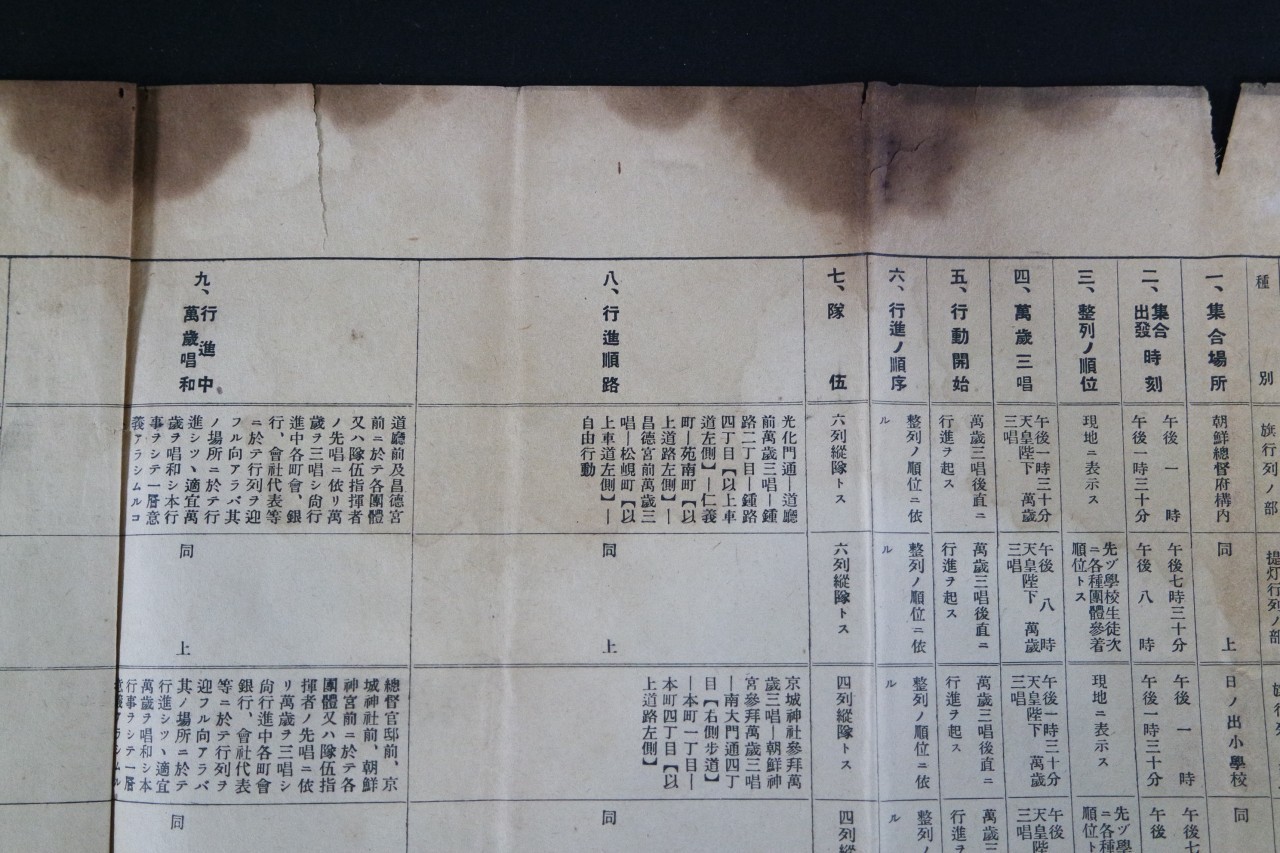 種別
一、集合場所
二、集合
出發
時刻
三、整列ノ順位
四、萬歲三唱
五、行動開始
六、行進ノ順序
七、隊伍
八、行進順路
九、行進中
萬歲唱和
旗行列ノ部
朝鮮總督府構內
午後一時
午後一時三十分
現地ニ表示ス
午後一時三十分
天皇陛下萬歲
三唱
萬歲三唱後直ニ
行進ヲ起ス
整列ノ順位ニ依
ル
六列縱隊トス
光化門通―道廳
前萬歲三唱―鍾
路二丁目―鍾路
四丁目【以上車
道左側】―仁義
町―苑南町【以
上道路左側】―
昌德宮前萬歲三
唱―松峴町【以
上車道左側】―
自由行動
道廳前及昌德宮
前ニ於テ各團體
又ハ隊伍指揮者
ノ先唱ニ依リ萬
歲ヲ三唱シ尙行
進中各町會、銀
行、會社代表等
ニ於テ行列ヲ迎
フル向アラバ其
ノ場所ニ於テ行
進シツヽ適宜萬
歲ヲ唱和シ本行
事ヲシテ一層意
義アラシムルコ
提灯行列ノ部
同上
午後七時三十分
午後八時
先ヅ學校生徒次
ニ各種團體參着
順位トス
午後八時
天皇陛下萬歲
三唱
萬歲三唱後直ニ
行進ヲ起ス
整列ノ順位ニ依
ル
六列縱隊トス
同上
同上
日ノ出小學校
午後一時
午後一時三十分
現地ニ表示ス
午後一時三十分
天皇陛下萬歲
三唱
萬歲三唱後直ニ
行進ヲ起ス
整列ノ順位ニ依
ル
四列縱隊トス
京城神社參拜萬
歲三唱―朝鮮神
宮參拜萬歲三唱
―南大門通四丁
目【右側步道】
―本町一丁目―
本町四丁目【以
上道路左側】
總督官邸前、京
城神社前、朝鮮
神宮前ニ於テ各
團體又ハ隊伍指
揮者ノ先唱ニ依
リ萬歲ヲ三唱シ
尙行進中各町會
銀行、會社代表
等ニ於テ行列ヲ
迎フル向アラバ
其ノ場所ニ於テ
行進シツヽ適宜
萬歲ヲ唱和シ本
行事ヲシテ一層
意義アラシムル
同
午後七
午後
先ヅ學
ニ各種
順位ト
午後
天皇陛
三唱
萬歲三
行進ヲ
整列ノ
ル
四列縱
同
同